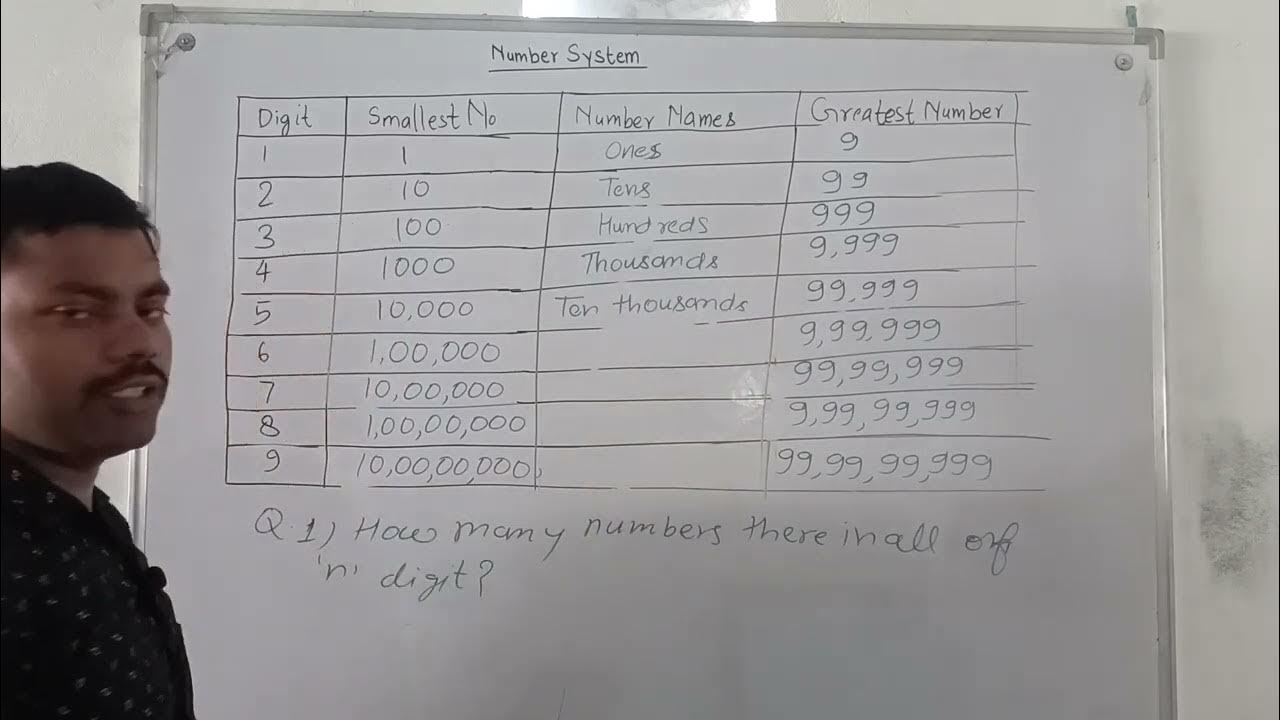 Number System
Digit Smallest No Number Names Greatest Number
1 1 Ones 9
2 10 Tens 99
3 100 Hundreds 999
4 1000 Thousands 9,999
5 10,000 Ten thousands 99,999
6 1,00,000 9,99,999
7 10,00,000 99,99,999
8 1,00,00,000 9,99,99,999
9 10,00,00,000 99,99,99,999
Q.1) How many numbers there in all of
'n' digit?